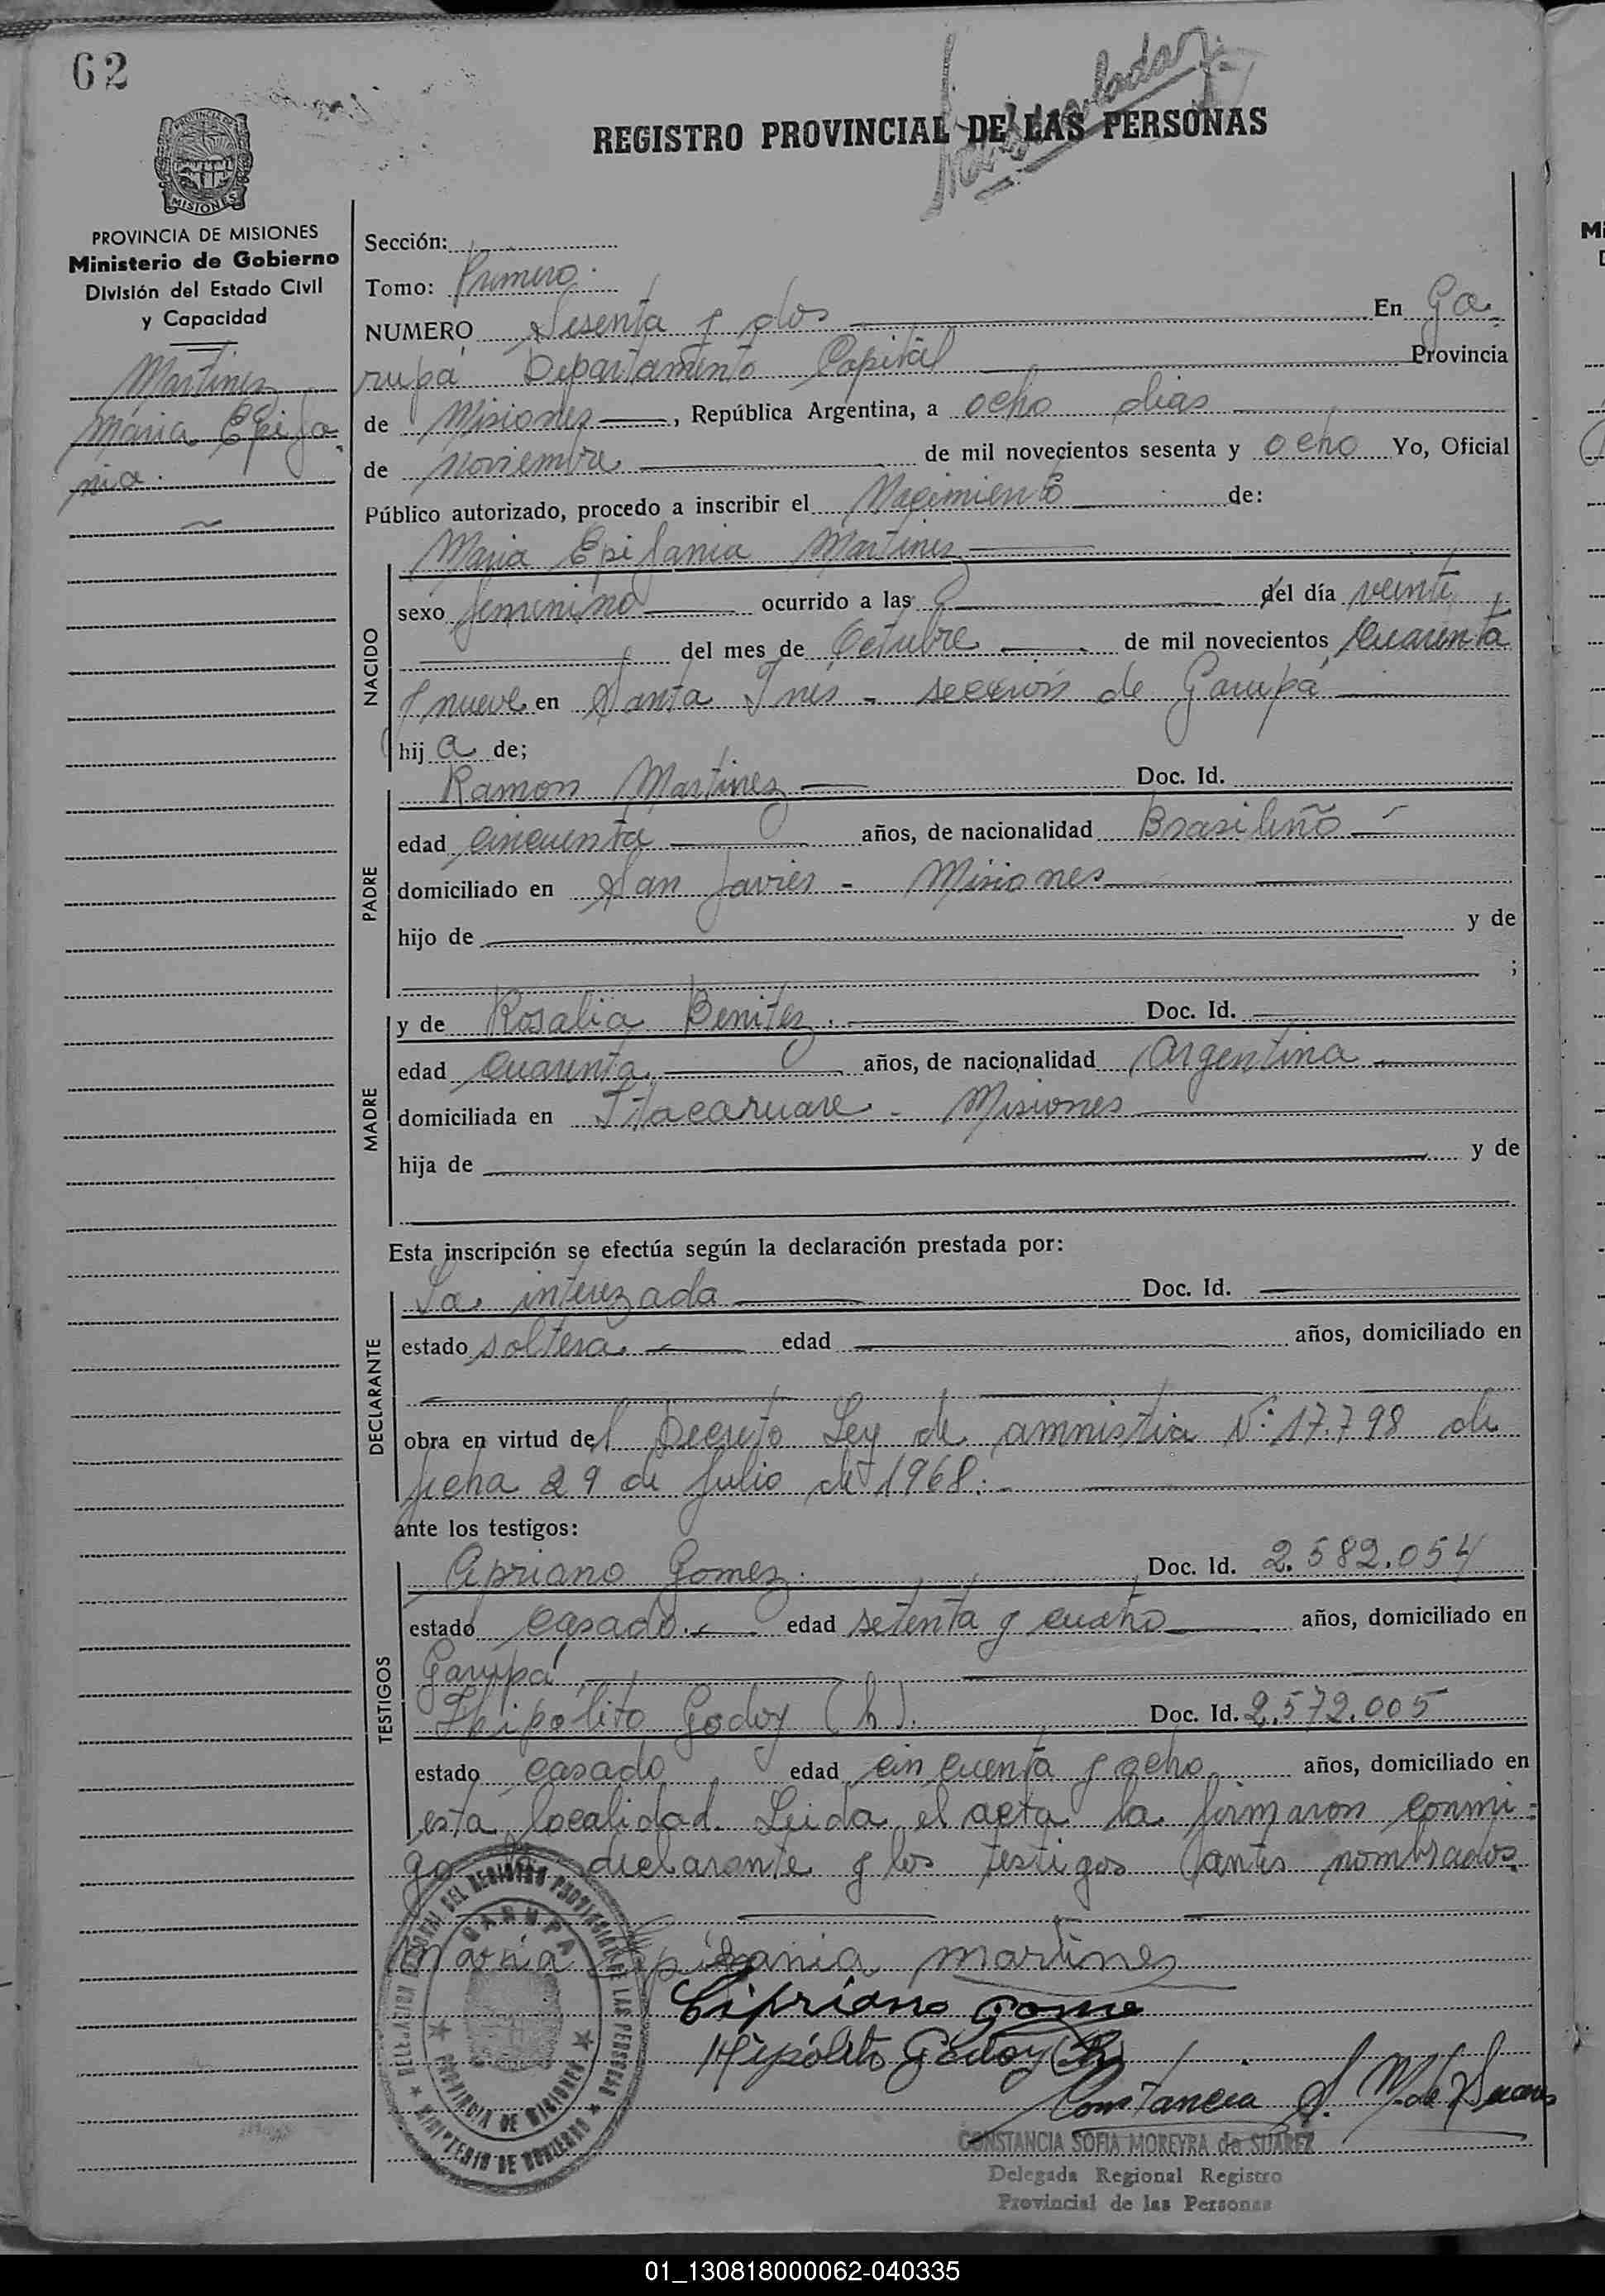 62
REGISTRO PROVINCIAL DE LAS PERSONAS
PROVINCIA DE
MISIONES
PROVINCIA DE MISIONES
Ministerio de Gobierno
División del Estado Civil
y Capacidad
Martinez
Maria Epifa
nia.
Sección:
Tomo: Primero.
NUMERO Sesenta y dos En Ga-
rupá Departamento Capital Provincia
de Misiones, República Argentina, a ocho dias
de Noviembre de mil novecientos sesenta y ocho Yo, Oficial
Público autorizado, procedo a inscribir el Nacimiento de:
Maria Epifania Martinez
NACIDO
sexo femenino ocurrido a las del día veinte
del mes de Octubre de mil novecientos cuarenta
y nueve en Santa Inés - sección de Garupá
hija de;
PADRE
Ramon Martinez Doc. Id.
edad cincuenta años, de nacionalidad Brasileño
domiciliado en San Javier - Misiones
hijo de y de
;
MADRE
y de Rosalia Benitez. Doc. Id.
edad cuarenta años, de nacionalidad Argentina
domiciliada en Itacaruare - Misiones
hija de y de
Esta inscripción se efectúa según la declaración prestada por:
DECLARANTE
La interezada Doc. Id.
estado soltera. edad años, domiciliado en
obra en virtud del Decreto Ley de amnistia N: 17.798 de
fecha 29 de Julio de 1968.-
ante los testigos:
TESTIGOS
Cipriano Gomez. Doc. Id. 2.582.054
estado casado. edad setenta y cuatro años, domiciliado en
Garupá
Hipólito Godoy (h). Doc. Id. 2.572.005
estado casado edad cincuenta y ocho años, domiciliado en
esta localidad. Leida el acta la firmaron conmi-
go la declarante y los testigos antes nombrados.
maria Epifania martines
Cipriano Gome
Hipólito Godoy (h)
Constancia S. M. de Suarez
CONSTANCIA SOFIA MOREYRA de SUAREZ
Delegada Regional Registro
Provincial de las Personas
DELEGACION REGIONAL DEL REGISTRO PROVINCIAL DE LAS PERSONAS
GARUPA
PROVINCIA DE MISIONES
MINISTERIO DE GOBIERNO
01_130818000062-040335